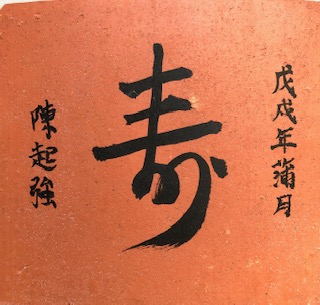 戊戌年蒲月
寿
陳起強